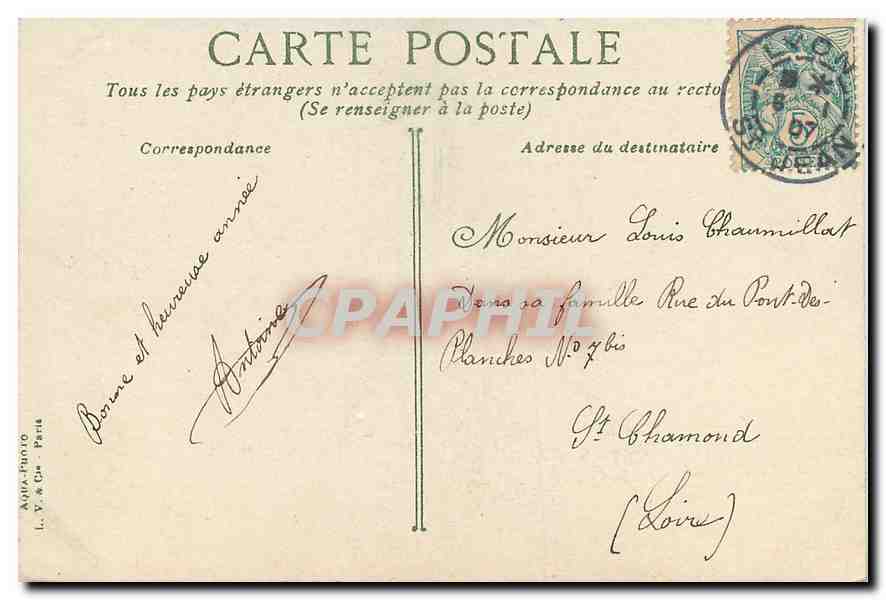 CARTE POSTALE
Tous les pays étrangers n'acceptent pas la correspondance au recto
(Se renseigner à la poste)
Correspondance
Adresse du destinataire
LYON
5
07
ST JEAN
Bonne et heureuse année
Antoine
Monsieur Louis Chaumillat
Dans sa famille Rue du Pont-Des-
Planches No 7 bis
St Chamond
(Loire)
CPAPHIL
AQUA-PHOTO
L. V. & Cie - Paris